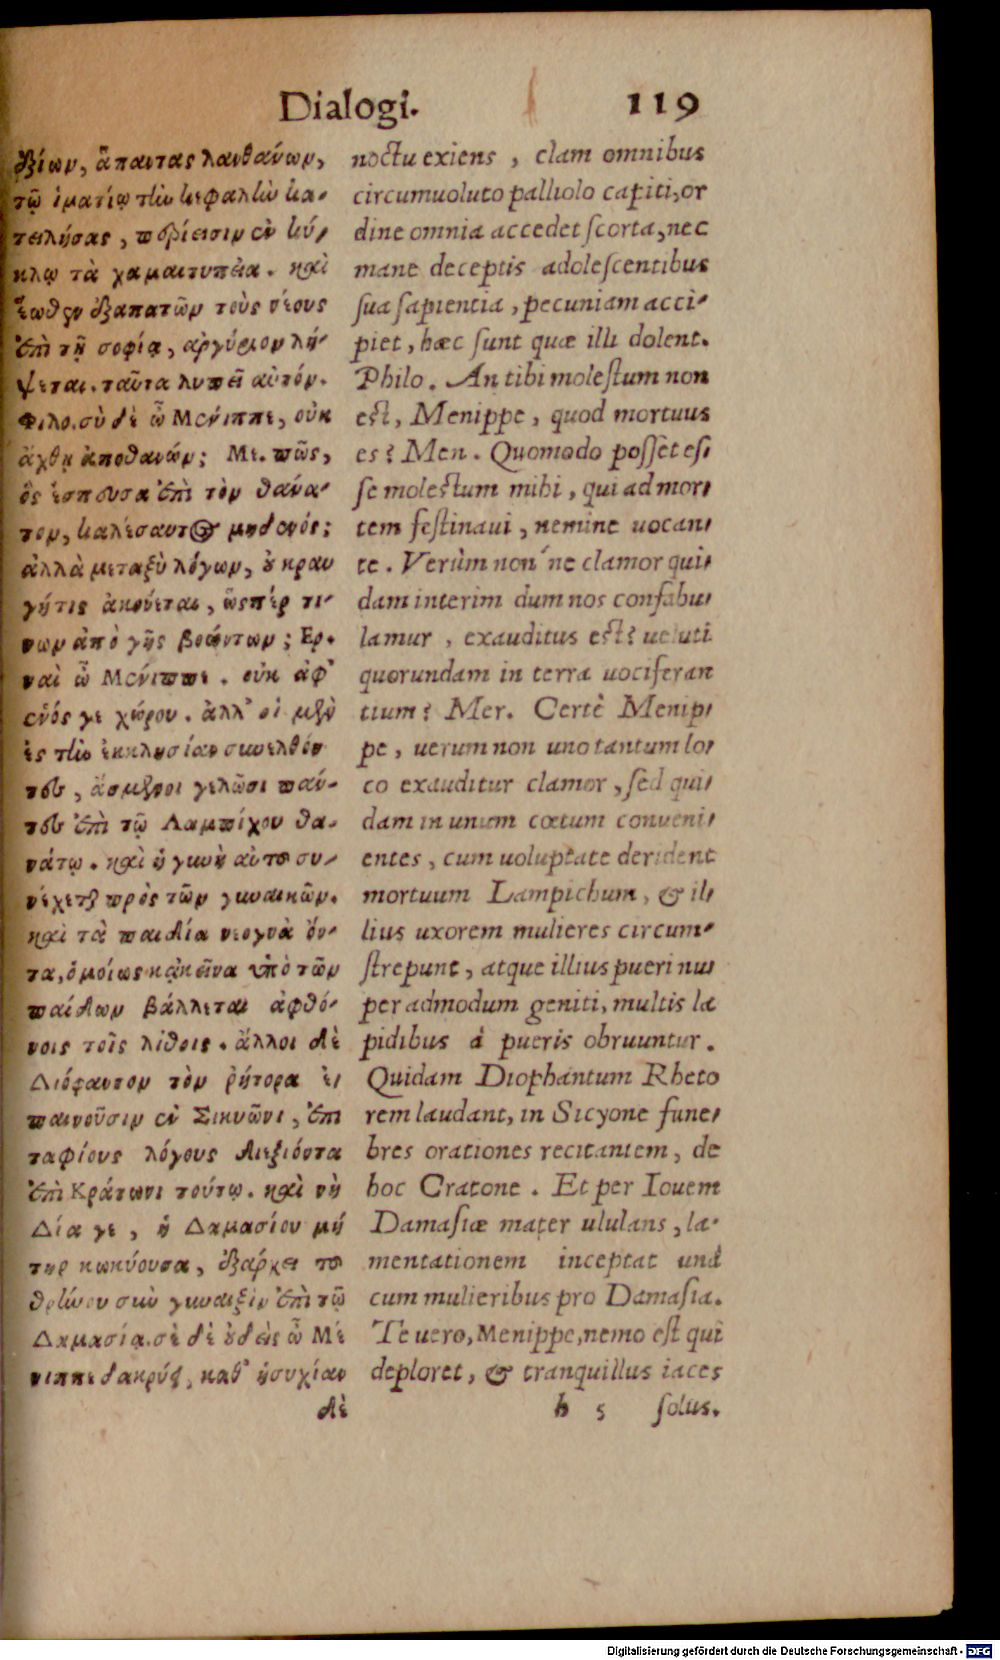 Dialogi. 119
ἐξίων, ἅπαντας λανθάνων,
τῷ ἱματίῳ τὴν κεφαλὴν κα-
τειλήσας, περίεισιν ἐν κύ-
κλῳ τὰ χαμαιτυπεῖα. καὶ
ἕωθεν ἐξαπατῶν τοὺς νέους
ἐπὶ τῇ σοφίᾳ, ἀργύριον λή-
ψεται. ταῦτα λυπεῖ αὐτόν.
Φιλο. σὺ δὲ ὦ Μένιππε, οὐκ
ἄχθῃ ἀποθανών; Με. πῶς,
ὃς ἔσπευσα ἐπὶ τὸν θάνα-
τον, καλέσαντος μηδενός;
ἀλλὰ μεταξὺ λόγων, οὐ κραυ
γή τις ἀκούεται, ὥσπέρ τι-
νων ἀπὸ γῆς βοώντων; Ερ.
ναὶ ὦ Μένιππε. οὐκ ἀφ'
ἑνός γε χώρου. ἀλλ' οἱ μὲν
ἐς τὴν ἐκκλησίαν συνελθόν
τες, ἄσμενοι γελῶσι πάν-
τες ἐπὶ τῷ Λαμπίχου θα-
νάτῳ. καὶ ἡ γυνὴ αὐτοῦ συ-
νέχεται πρὸς τῶν γυναικῶν.
καὶ τὰ παιδία νεογνὰ ὄν-
τα, ὁμοίως κᾀκεῖνα ὑπὸ τῶν
παίδων βάλλεται ἀφθό-
νοις τοῖς λίθοις. ἄλλοι δὲ
Διόφαντον τὸν ῥήτορα ἐ-
παινοῦσιν ἐν Σικυῶνι, ἐπι
ταφίους λόγους διεξιόντα
ἐπὶ Κράτωνι τούτῳ. καὶ νὴ
Δία γε, ἡ Δαμασίου μή
τηρ κωκύουσα, ἐξάρχει τοῦ
θρήνου σὺν γυναιξὶν ἐπὶ τῷ
Δαμασίᾳ. σὲ δὲ οὐδεὶς ὦ Μέ
νιππε δακρύει, καθ' ἡσυχίαν
δὲ
noctu exiens, clam omnibus
circumuoluto palliolo capiti, or
dine omnia accedet scorta, nec
mane deceptis adolescentibus
sua sapientia, pecuniam acci-
piet, hæc sunt quæ illi dolent.
Philo. An tibi molestum non
est, Menippe, quod mortuus
es? Men. Quomodo posset es-
se molestum mihi, qui ad mor-
tem festinaui, nemine uocan-
te. Verùm non'ne clamor qui-
dam interim dum nos confabu-
lamur, exauditus est? ueluti
quorundam in terra uociferan
tium? Mer. Certè Menip-
pe, uerum non uno tantum lo-
co exauditur clamor, sed qui-
dam in unum cœtum conueni-
entes, cum uoluptate derident
mortuum Lampichum, & il-
lius uxorem mulieres circum-
strepunt, atque illius pueri nu-
per admodum geniti, multis la
pidibus à pueris obruuntur.
Quidam Diophantum Rheto
rem laudant, in Sicyone fune-
bres orationes recitantem, de
hoc Cratone. Et per Iouem
Damasiæ mater ululans, la-
mentationem inceptat unà
cum mulieribus pro Damasia.
Te uero, Menippe, nemo est qui
deploret, & tranquillus iaces
h 5 solus.
Digitalisierung gefördert durch die Deutsche Forschungsgemeinschaft - DFG